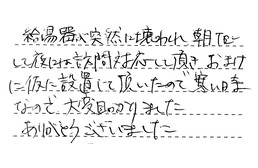 給湯器が突然に壊われ朝TEL
して夜には訪問対応して頂きおまけ
に仮に設置して頂いたので寒い日
なので、大変助かりました
ありがとうございました